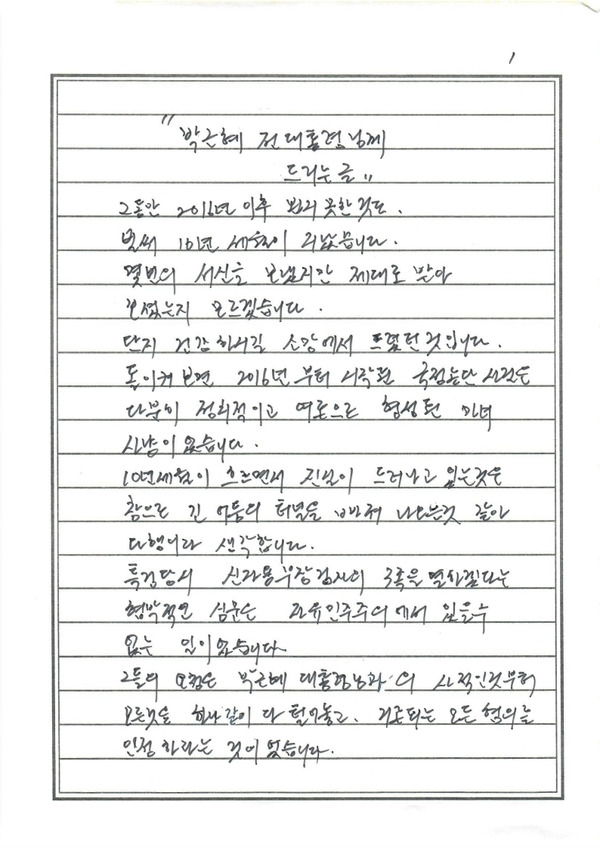 1
"박근혜 전 대통령님께
드리는 글"
그동안 2016년 이후 뵙지 못한것도.
벌써 10년 세월이 지났습니다.
몇번의 서신을 보냈지만 제대로 받아
보셨는지 모르겠습니다.
단지 건강하시길 소망에서 드렸던것입니다.
돌이켜 보면 2016년 부터 시작된 국정농단 사건은
다분히 정치적이고 여론으로 형성된 마녀
사냥이였습니다.
10년세월이 흐르면서 진실이 드러나고 있는것은
참으로 긴 어둠의 터널을 빠져 나오는것 같아
다행이라 생각합니다.
특검당시 신자용부장검사의 3족을 멸하겠다는
협박적인 심문은 자유민주주의에서 있을수
없는 일이였습니다
그들의 요점은 박근혜 대통령님과의 사적인것부터
모든것을 하나같이 다 털어놓고. 거론되는 모든 혐의를
인정하라는 것이였습니다.